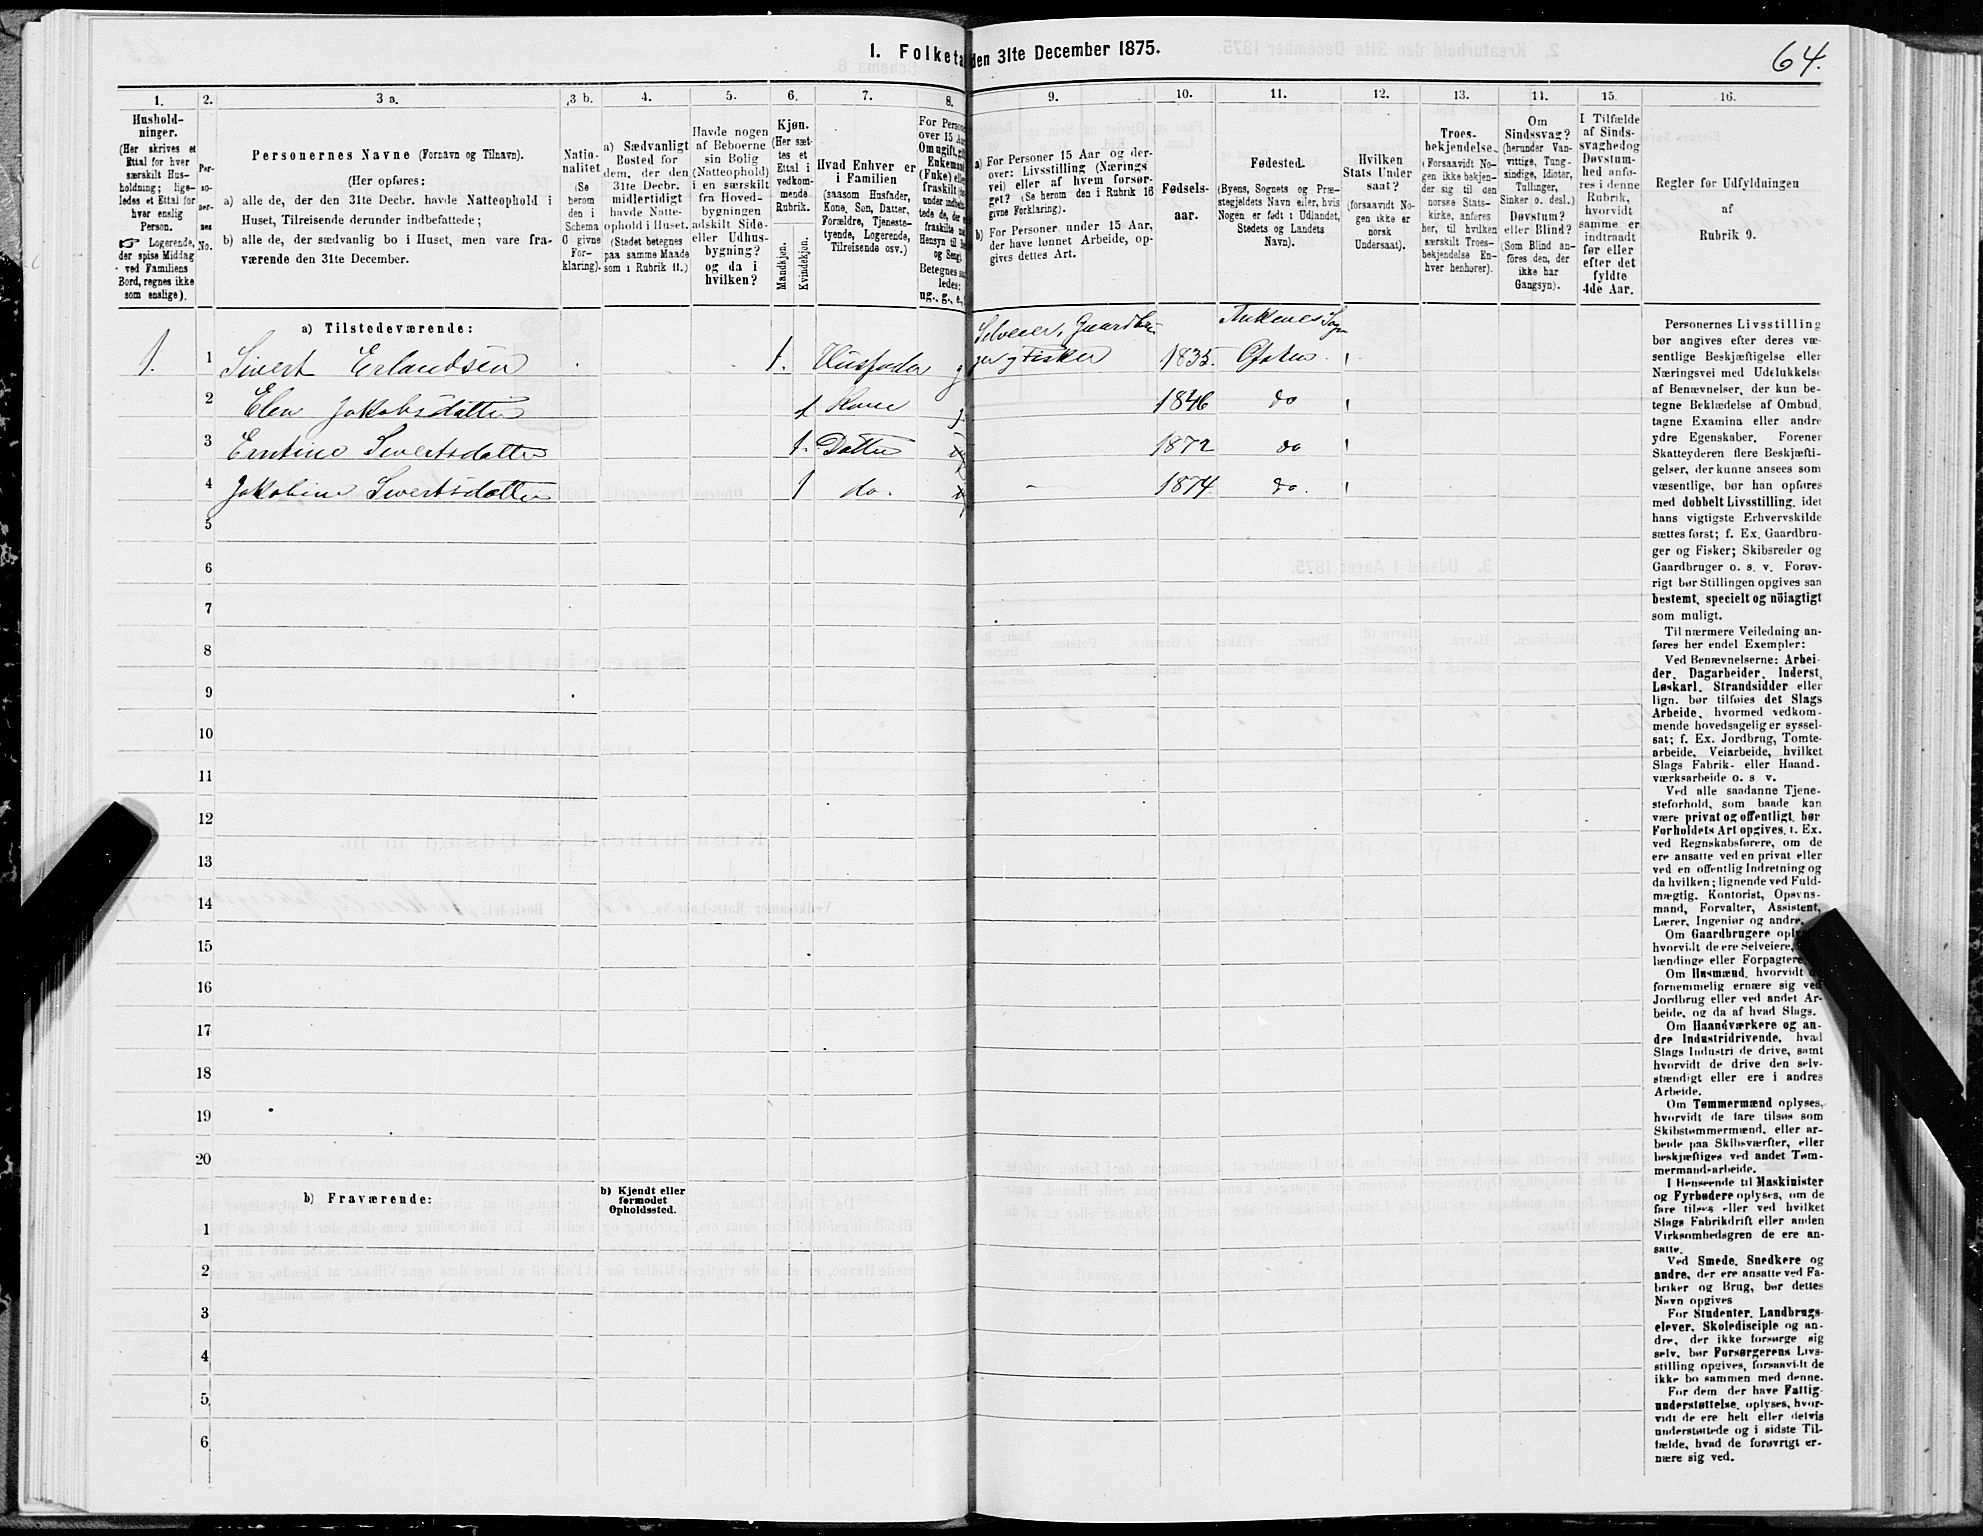 64.
I. Folketa den 31te December 1875.
1. 2. 3 a. 3 b. 4. 5. 6. 7. 8. 9. 10. 11. 12. 13. 14. 15. 16.
Hushold-
ninger.
(Her skrives et
Ettal for hver
særskilt Hus-
holdning; lige-
ledes et Ettal for
hver enslig
Person.
☞ Logerende,
der spise Middag
ved Familiens
Bord, regnes ikke
som enslige).
Per-
so-
ner-
nes
No.
Personernes Navne (Fornavn og Tilnavn).
(Her opføres:
a) alle de, der den 31te Decbr. havde Natteophold i
Huset, Tilreisende derunder indbefattede;
b) alle de, der sædvanlig bo i Huset, men vare fra-
værende den 31te December.
Natio-
nalitet
(Se
herom
den i
Schema
givne
For-
klaring).
a) Sædvanligt
Bosted for
dem, der den
31te Decbr.
midlertidigt
havde Natte-
ophold i Huset.
(Stedet betegnes
paa samme Maade
som i Rubrik 11.)
Havde nogen
af Beboerne
sin Bolig
(Natteophold)
i en særskilt
fra Hoved-
bygningen
adskilt Side-
eller Udhus-
bygning?
og da i
hvilken?
Kjøn.
(Her sæt-
tes et
Ettal i
vedkom-
mende
Rubrik.
Mandkjøn.
Kvindekjøn.
Hvad Enhver er
i Familien
(saasom Husfader,
Kone, Søn, Datter,
Forældre, Tjeneste-
tyende, Logerende,
Tilreisende osv.)
For Person
over 15 Aar
Om ugift, gift
Enkemand
(Enke) eller
fraskilt
Betegnes saa-
ledes:
ug., g., e.,
a) For Personer 15 Aar og der-
over: Livsstilling (Nærings
vei) eller af hvem forsør-
get? (Se herom den i Rubrik 16
givne Forklaring).
b) For Personer under 15 Aar,
der have lønnet Arbeide, op-
gives dettes Art.
Fødsels-
aar.
Fødested.
(Byens, Sognets og Præ-
stegjeldets Navn eller, hvis
Nogen er født i Udlandet,
Stedets og Landets
Navn).
Hvilken
Stats Under
saat?
(forsaavidt No-
gen ikke er
norsk
Undersaat).
Troes-
bekjendelse.
(Forsaavidt No-
gen ikke bekjen-
der sig til den
norske Stats-
kirke, anføres
her, til hvilken
særskilt Troes-
bekjendelse En-
hver henhører).
Om
Sindssvag?
(herunder Van-
vittige, Tung-
sindige, Idioter,
Tullinger,
Sinker o. desl.)
Døvstum?
eller Blind?
(Som Blind an-
føres den, der
ikke har
Gangsyn).
I Tilfælde
af Sinds-
svaghed og
Døvstum-
hed anfø-
res i denne
Rubrik,
hvorvidt
samme er
indtraadt
før eller
efter det
fyldte
4de Aar.
Regler for Udfyldningen
af
Rubrik 9.
a) Tilstedeværende:
Selveier, Gaardbru-
1. 1 Sivert Erlandsen 1. Husfader g ger og Fisker 1835. Ofoten
2 Elen Jakobsdatter 1 Kone g. 1846 do
3 Erntine Sivertsdatter 1. Datter 1872 do
4 Jakobine Sivertsdatter 1 do. 1874. do.
5
6
7
8
9
10
11
12
13
14
15
16
17
18
19
20
b) Fraværende:
b) Kjendt eller
formodet
Opholdssted.
1
2
3
4
5
6
Personernes Livsstilling
bør angives efter deres væ-
sentlige Beskjæftigelse eller
Næringsvei med Udelukkelse
af Benævnelser, der kun be-
tegne Beklædelse af Ombud,
tagne Examina eller andre
ydre Egenskaber. Forener
Skatteyderen flere Beskjæfti-
gelser, der kunne ansees som
væsentlige, bør han opføres
med dobbelt Livsstilling, idet
hans vigtigste Erhvervskilde
sættes først; f. Ex. Gaardbru-
ger og Fisker; Skibsreder og
Gaardbruger o. s. v. Forøv-
rigt bør Stillingen opgives saa
bestemt, specielt og nøiagtigt
som muligt.
Til nærmere Veiledning an-
føres her endel Exempler:
Ved Benævnelserne: Arbei-
der, Dagarbeider, Inderst,
Løskarl, Strandsidder eller
lign. bør tilføies det Slags
Arbeide, hvormed vedkom-
mende hovedsagelig er syssel-
sat; f. Ex. Jordbrug, Tomte-
arbeide, Veiarbeide, hvilket
Slags Fabrik- eller Haand-
værksarbeide o. s v.
Ved alle saadanne Tjene-
steforhold, som baade kan
være privat og offentligt, bør
Forholdets Art opgives, t. Ex.
ved Regnskabsførere, om de
ere ansatte ved en privat eller
ved en offentlig Indretning og
da hvilken; lignende ved Fuld-
mægtig, Kontorist, Opsyns-
mand, Forvalter, Assistent,
Lærer, Ingeniør og andre.
Om Gaardbrugere oply
hvorvidt de ere Selveiere,
lændinge eller Forpagtere
Om Husmænd, hvorvidt
fornemmelig ernære sig ved
Jordbrug eller ved andet Ar-
beide, og da af hvad Slags.
Om Haandværkere og an-
dre Industridrivende, hvad
Slags Industri de drive, samt
hvorvidt de drive den selv-
stændigt eller ere i andres
Arbeide.
Om Tømmermænd oplyses,
hvorvidt de fare tilsøs som
Skibstømmermænd, eller ar-
beide paa Skibsværfter, eller
beskjæftiges ved andet Tøm-
mermandsarbeide.
I Henseende til Maskinister
og Fyrbødere oplyses, om de
fare tilsøs eller ved hvilket
Slags Fabrikdrift eller anden
Virksomhedsgren de ere an-
satte.
Ved Smede, Snedkere og
andre, der ere ansatte ved Fa-
briker og Brug, bør dettes
Navn opgives
For Studenter, Landbrugs-
elever, Skoledisciple og an-
dre, der ikke forsørge sig
selv, bør Forsørgerens Livs-
stilling opgives, forsaavidt de
ikke bo sammen med denne.
For dem, der have Fattig-
understøttelse, oplyses, hvor-
vidt de ere helt eller delvis
understøttede og i sidste Til-
fælde, hvad de forøvrigt er-
nære sig ved.